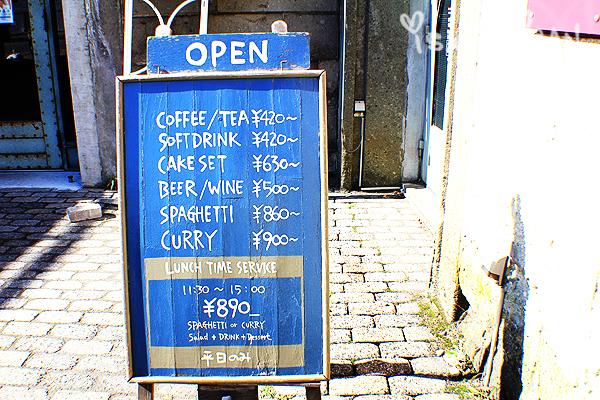 OPEN
COFFEE/TEA ¥420~
SOFT DRINK ¥420~
CAKE SET ¥630~
BEER/WINE ¥500~
SPAGHETTI ¥860~
CURRY ¥900~
LUNCH TIME SERVICE
11:30 ~ 15:00
¥890_
SPAGHETTI or CURRY
Salad + DRINK + Dessert
平日のみ